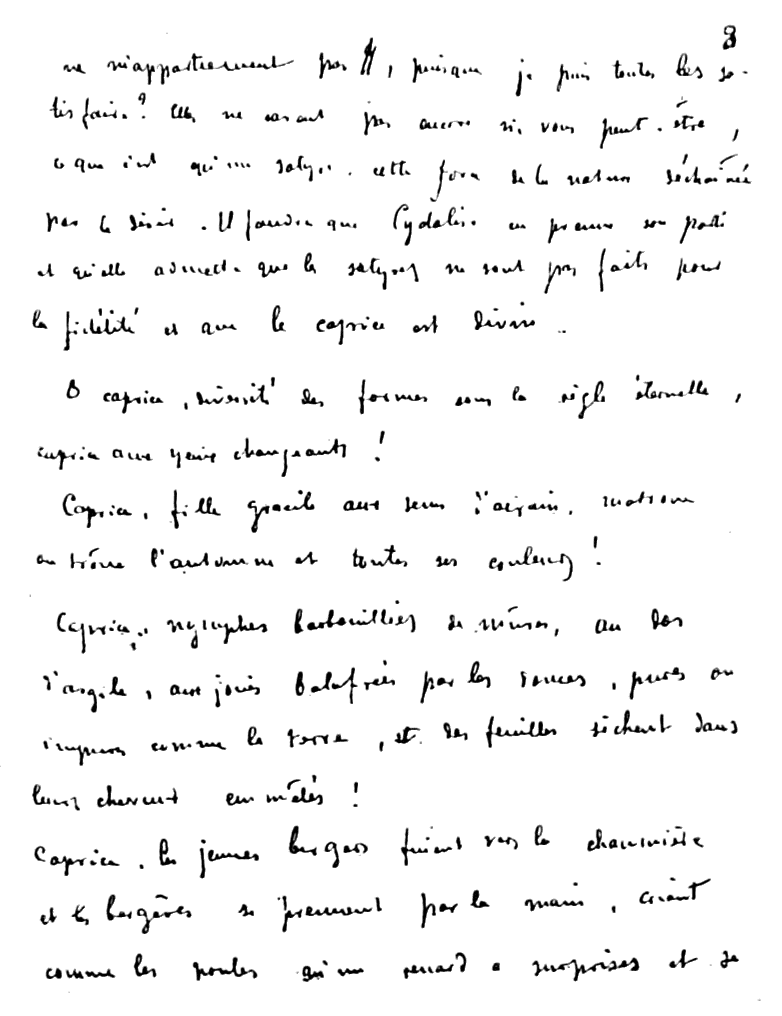 8
ne m'appartiennent pas, puisque je puis toutes les sa-
tisfaire? Elles ne savent pas encore ni vous peut-être,
ce que c'est qu'un satyre. cette force de la nature déchaînée
par le désir. Il faudra que Cydalise en prenne son parti
et qu'elle admette que les satyres ne sont pas faits pour
la fidélité et que le caprice est divin..
O caprice, diversité des formes sous la règle éternelle,
caprice aux yeux changeants!
Caprice, fille gracile aux seins d'airain, matrone
où trône l'automne et toutes ses couleurs!
Caprice, nymphes barbouillées de mûres, au dos
d'argile, aux joues balafrées par les ronces, pures ou
impures comme la terre, et des feuilles sèchent dans
leurs cheveux emmêlés!
Caprice, les jeunes bergers fuient vers la chaumière
et les bergères se prennent par la main, criant
comme les poules qu'un renard a surprises et se